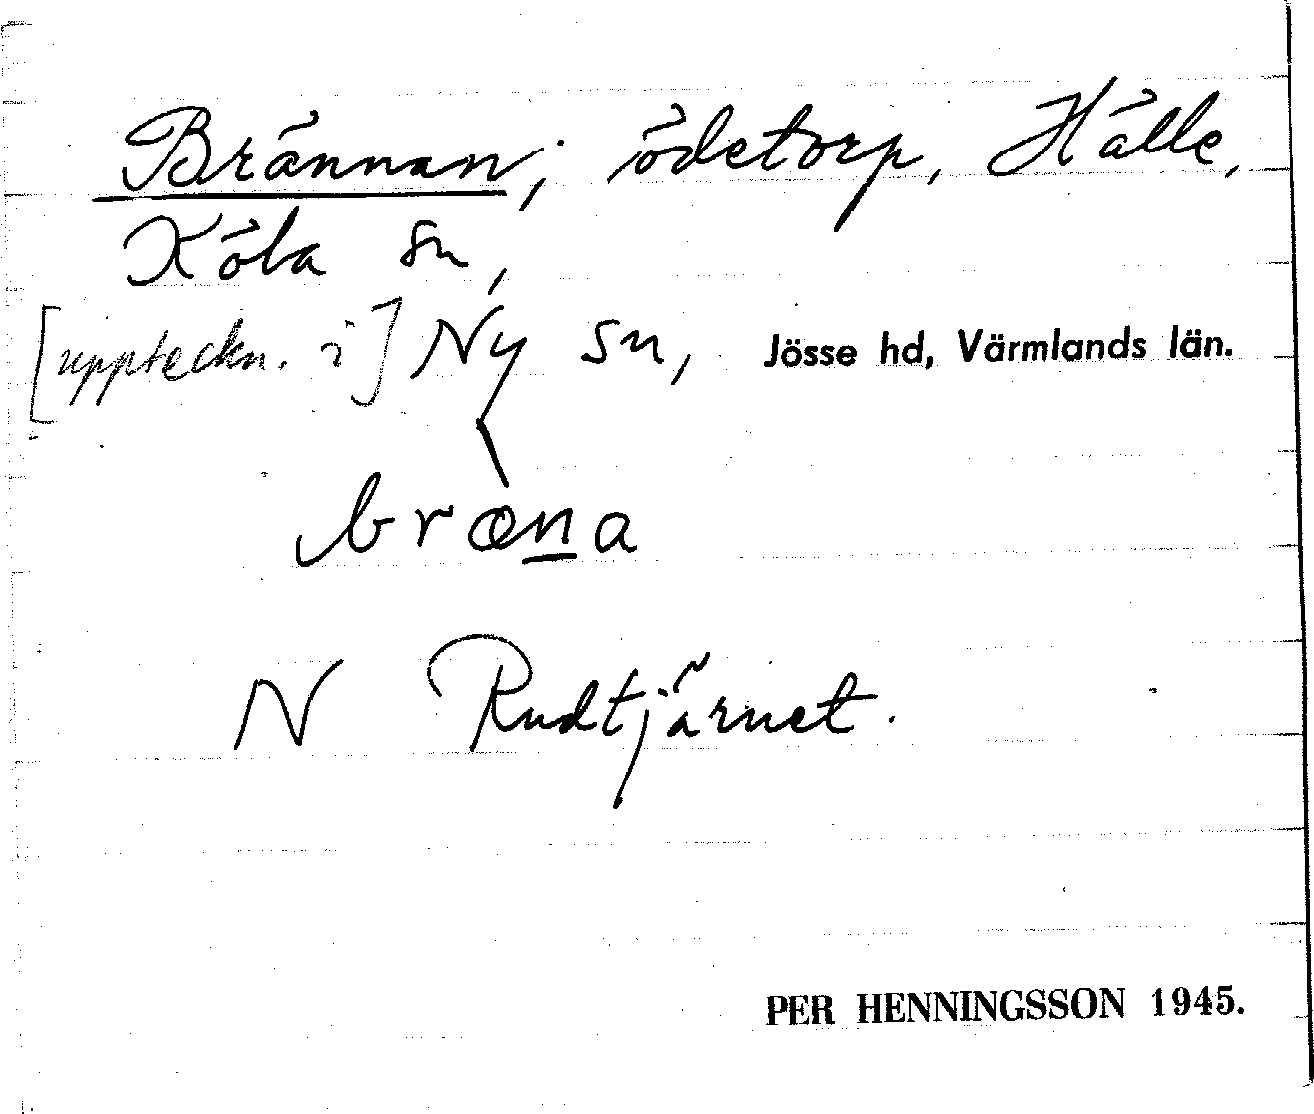 Brännan, ödetorp, Hälle,
Köla sn,
[uppteckn. i] Ny sn, Jösse hd, Värmlands län.
bræna
N Rudtjärnet.
PER HENNINGSSON 1945.